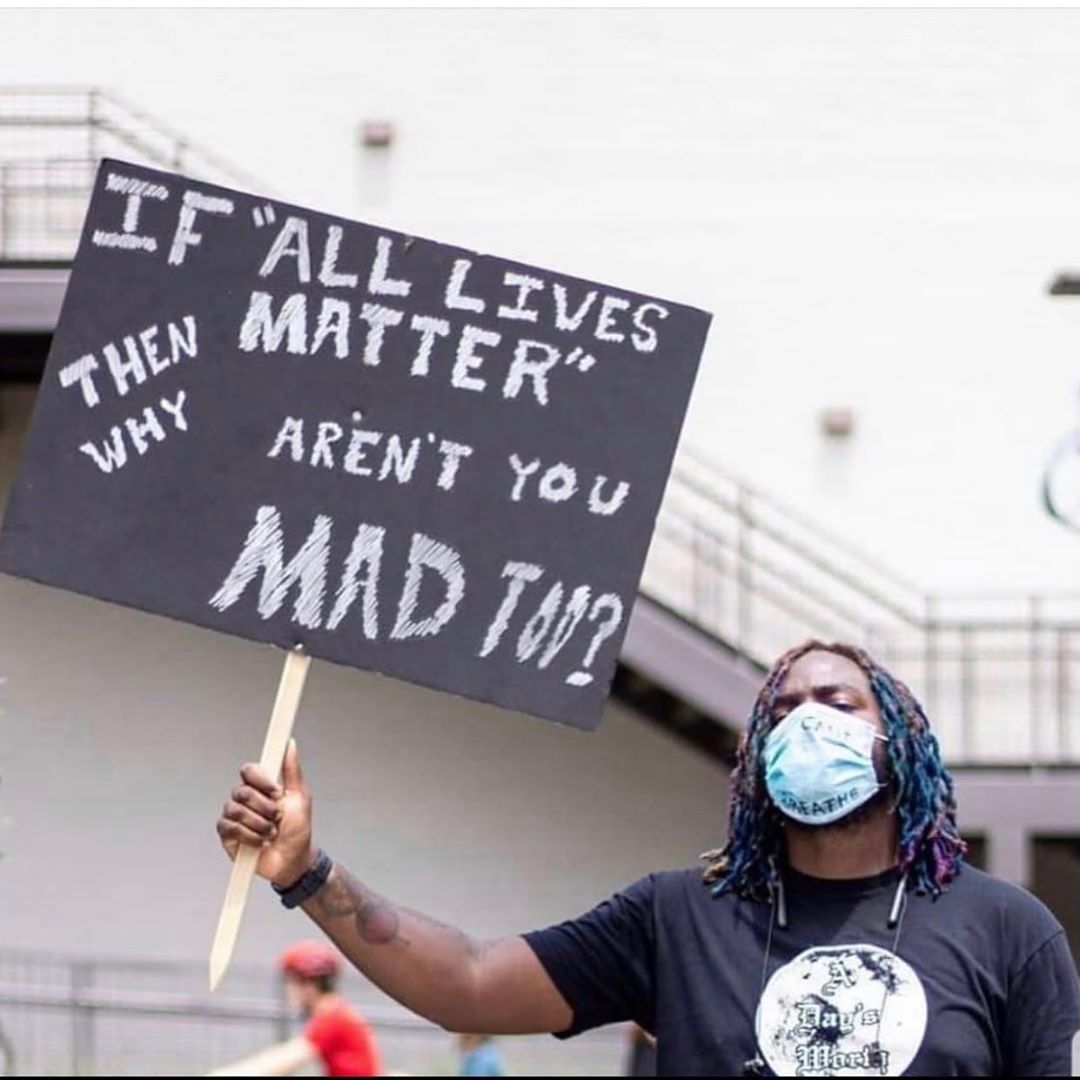 IF "ALL LIVES
MATTER"
THEN
WHY
AREN'T YOU
MAD TOO?
CAN'T
BREATHE
A
Day's
Worth